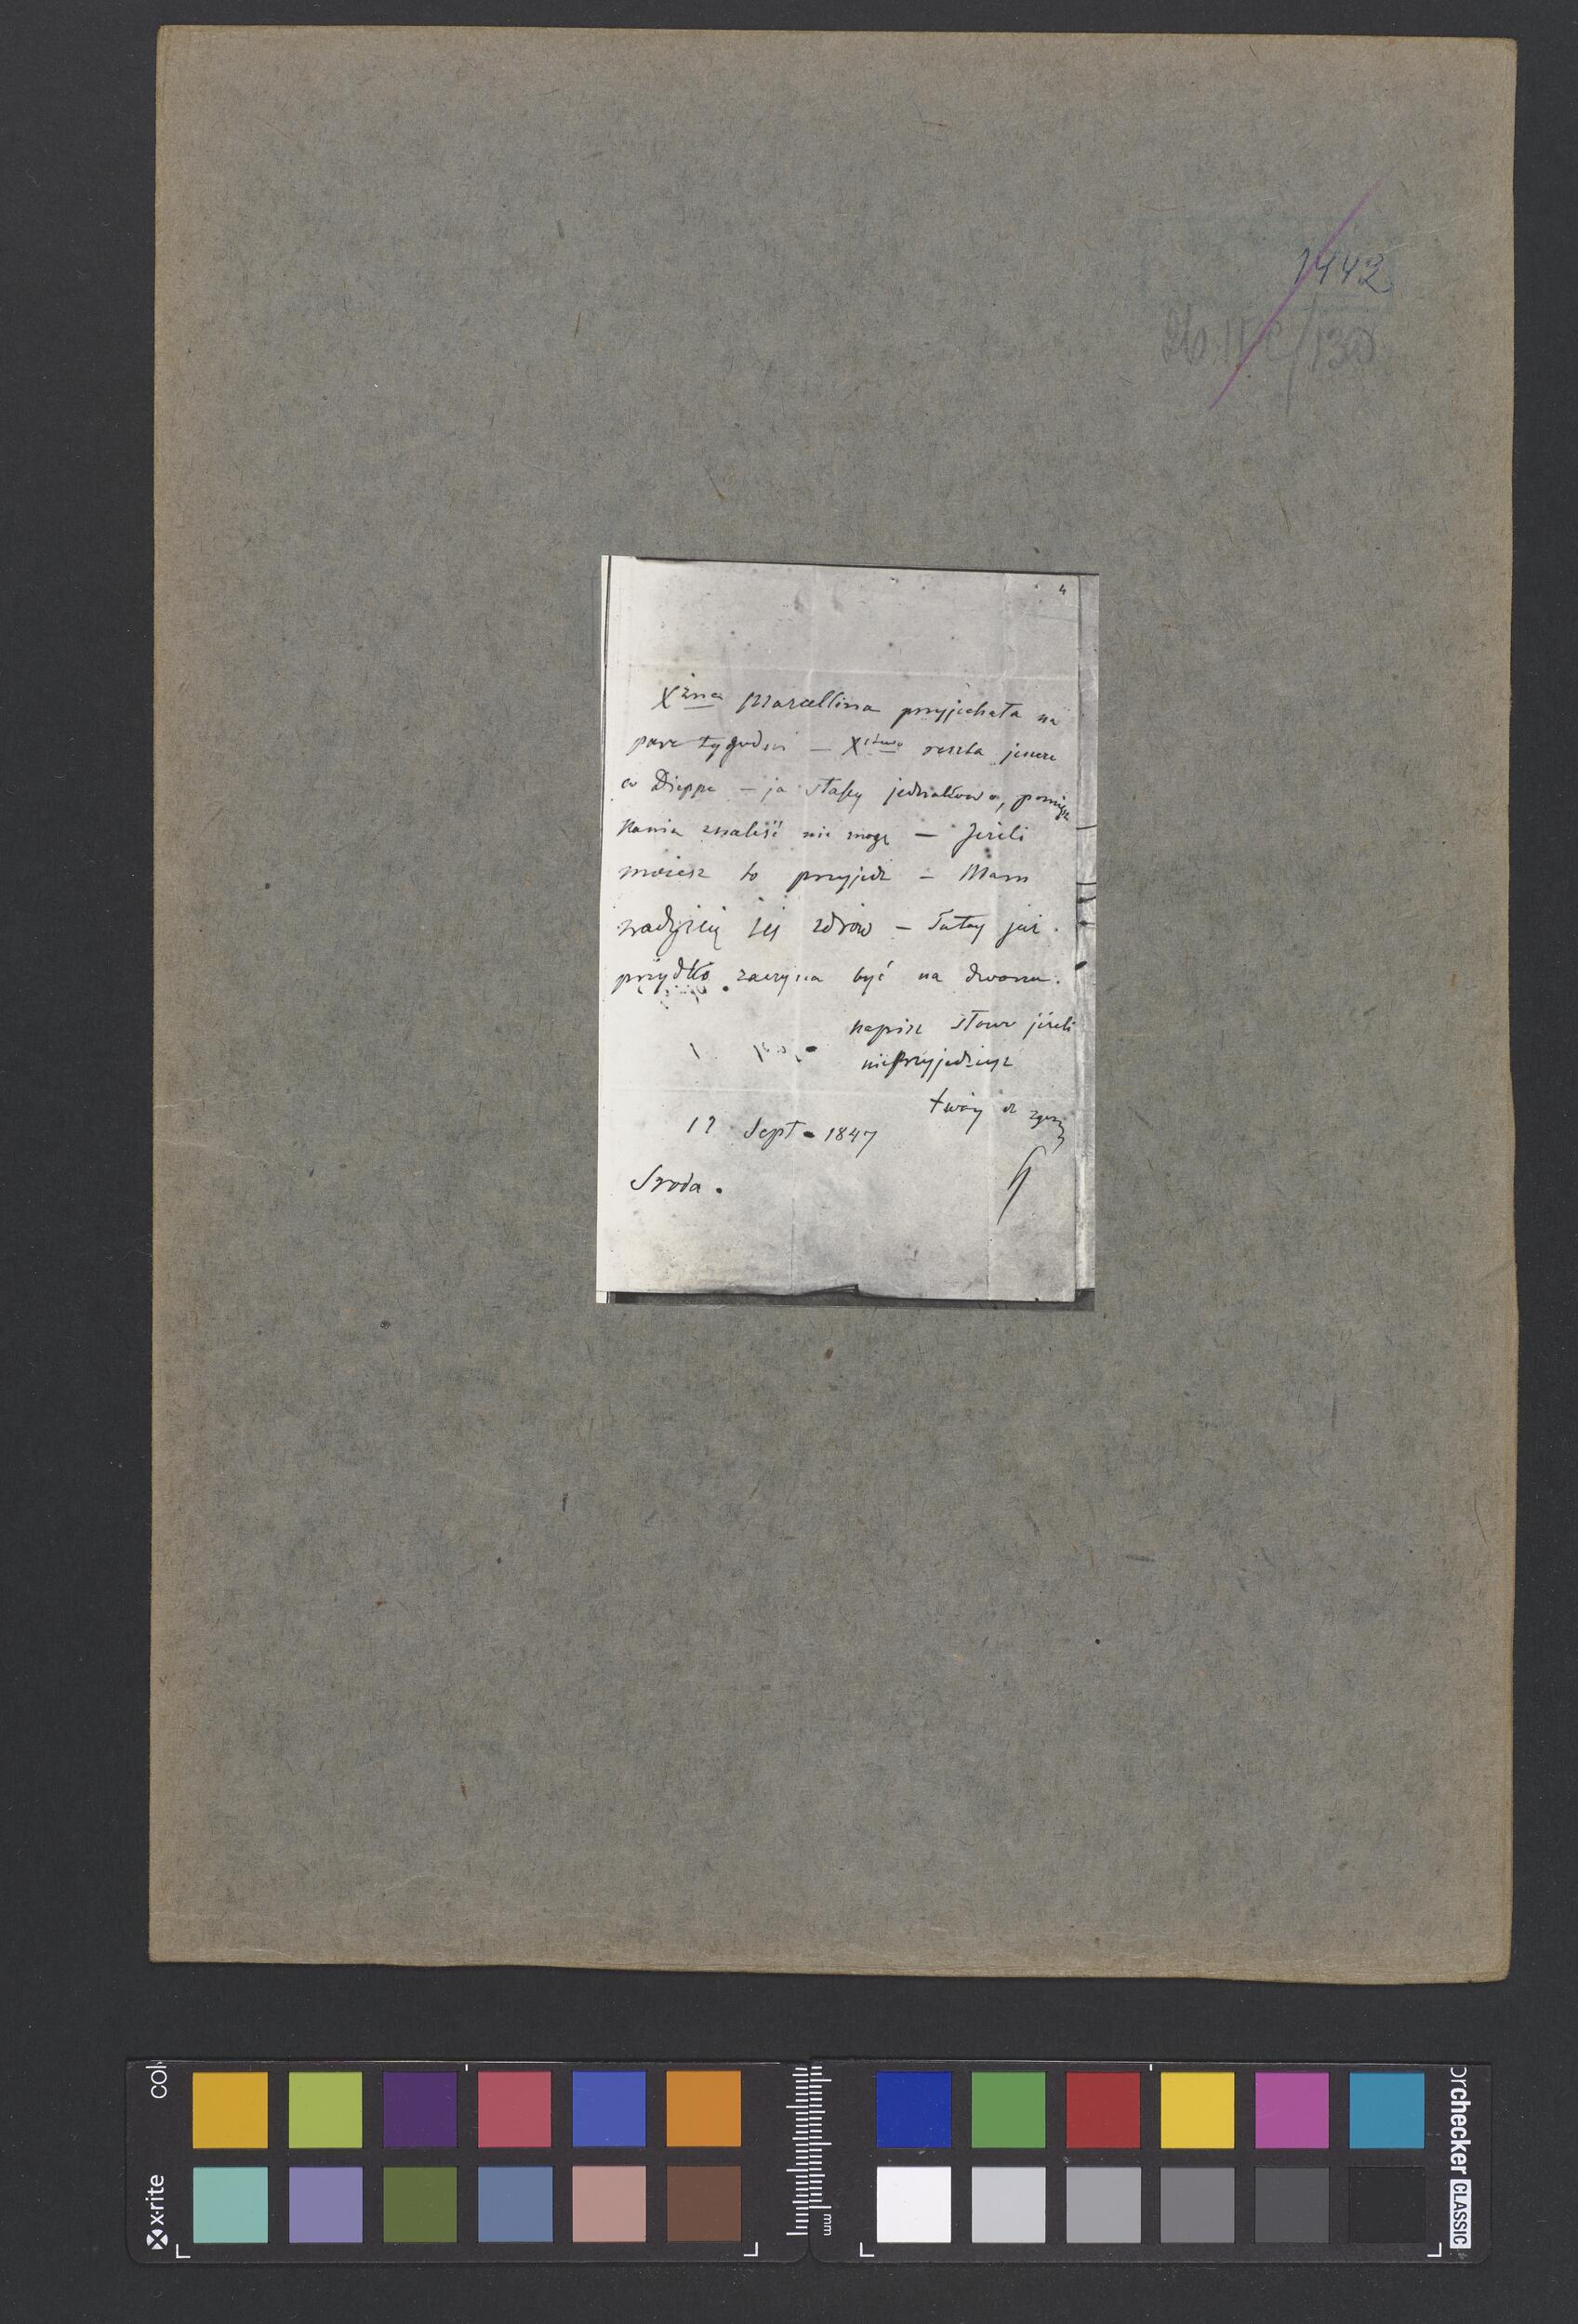 1442
26.II C/130
4
Xżna Marcellina przyjechała na
parę tygodni – Xstwo reszta jeszcze
w Dieppe – ja słaby jednakowo, pomięsz
kania znaleść nie mogę – Jeżeli
możesz to przyjedź – Mam
nadzieję żeś zdrów – Tutaj już
brzydko zaczyna być na dworze.
Napisz słowo jeżeli
nieprzyjedziesz
twój
Sept 1847
Sroda.
x-rite
mm
checker CLASSIC